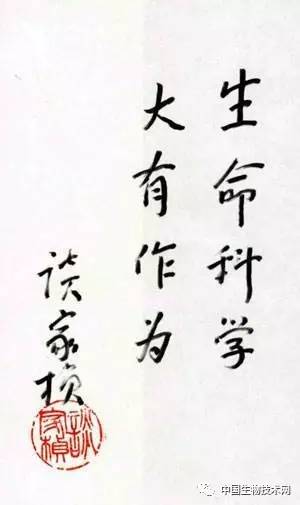 生命科学
大有作为
谈家桢
談家楨
中国生物技术网